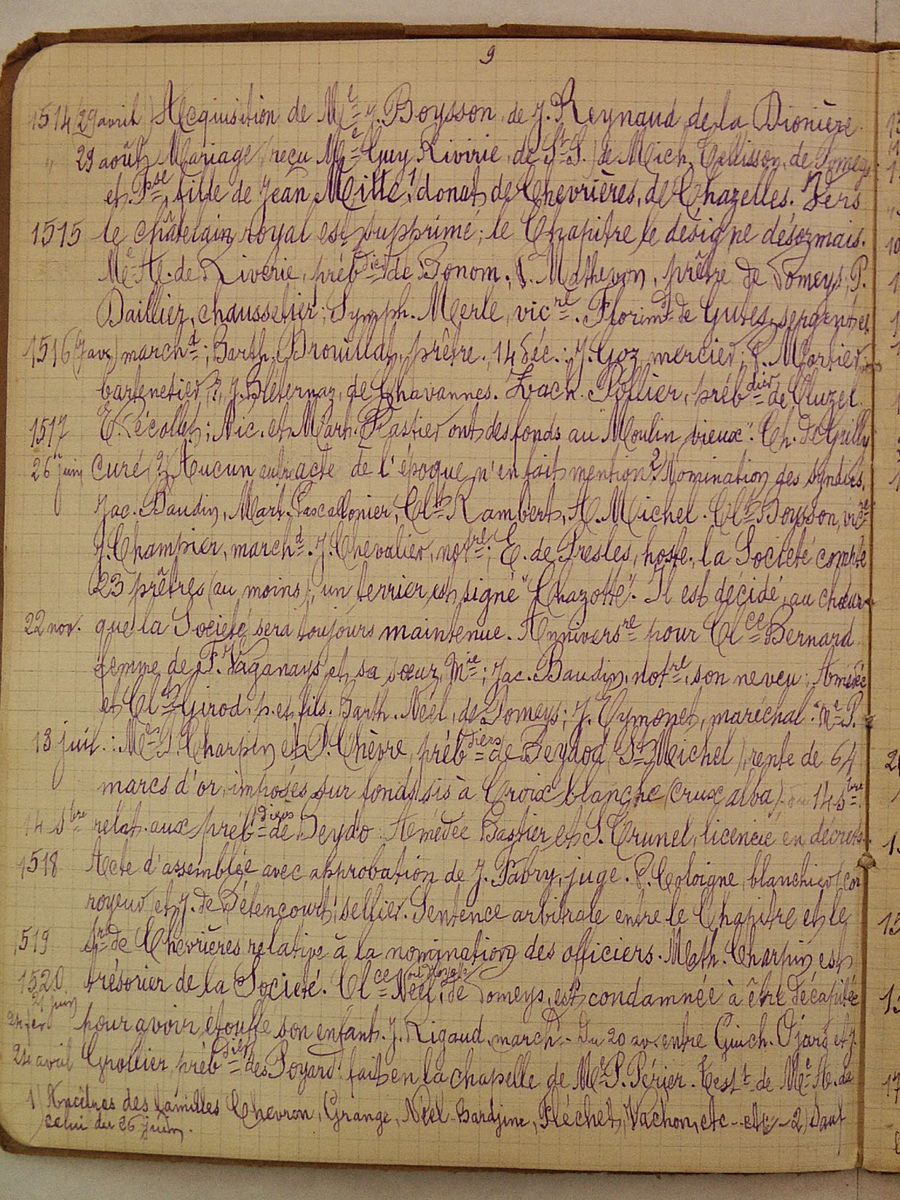 9
1514 (29 avril) Acquisition de Me J. Boysson de J. Reynaud de la Dionière
" 29 août, Mariage (reçu Me Guy Rivirie de St S.) de Mich. Collisson, de Pomeys
et Pse, fille de Jean Mitte 1, donat de Chevrières, de Chazelles. Vers
1515 le châtelain royal est supprimé ; le Chapitre le désigne désormais.
Me A. de Riverie, prébdier de Bonom. P. Mathevon, prêtre de Pomeys, P.
Daillier, chaussetier ; Symph. Merle, vicre. Florimt de Gutes, sergent roel
1516 (7 avr.) marchd ; Barth. Drouillat, prêtre. 14 déc. : J. Goz, mercier, P. Mortier
bartenetier ?, J. Béternaz, de Chavannes. Zach. Pollier, prébdier de Cluzel.
1517 E. Récollet ; Nic. et Mart. Pastier ont des fonds au "Moulin vieux". Ch. de Gilly
26 juin curé ? (Aucun autre acte de l'époque n'en fait mention 2) Nomination des syndics,
Jac. Baudin, Mart. Pascallonier, Clt Rambert, A. Michel. Clt Boysson, vicre
J. Champier, marchd. J. Chevalier, notre ; E. de Presles, hoste. la Société compte
23 prêtres (au moins) ; un terrier est signé "Chazotte". Il est décidé, au chœur
22 nov. que la Société sera toujours maintenue. Anniversre pour Clce Bernard
femme de F. Vaganays et sa sœur, Mie ; Jac. Baudin, notre, son neveu ; Amédée
et Clt Girod, p. et fils. Barth. Néel, de Pomeys ; J. Eymonet, marechal. Me P.
13 juil. : Me S. Charpin et P. Chèvre, prébdiers de Peydod (St Michel), rente de 64
marcs d'or, imposés sur fonds sis à Croix blanche (Crux alba), 14 5bre
14 5bre relat. aux prébdiers de Peydo : Amédée Bastier et S. Crunel, licencié en décrets
1518 Acte d'assemblée avec approbation de J. Fabry, juge. P. Coloigne, blanchier (cor
royeur) et J. de Bétencourt, sellier. Sentence arbitrale entre le Chapitre et le
1519 sgr de Chevrières relative à la nomination des officiers. Math. Charpin est
1520 trésorier de la Société. Clce Néel, de Pomeys, est condamnée à être décapitée
pour avoir étouffé son enfant. J. Rigaud, march. - Du 20 av. entre Guich. Ojard et J.
24 avril Grollier prébdiers des Poyard fait en la chapelle de Me P. Périer. Testt de Me A. de
1) Ancêtres des familles Chevron, Grange, Néel-Bardjine, Fléchet, Vachon, etc - etc - 2) Sauf
celui du 26 juin.